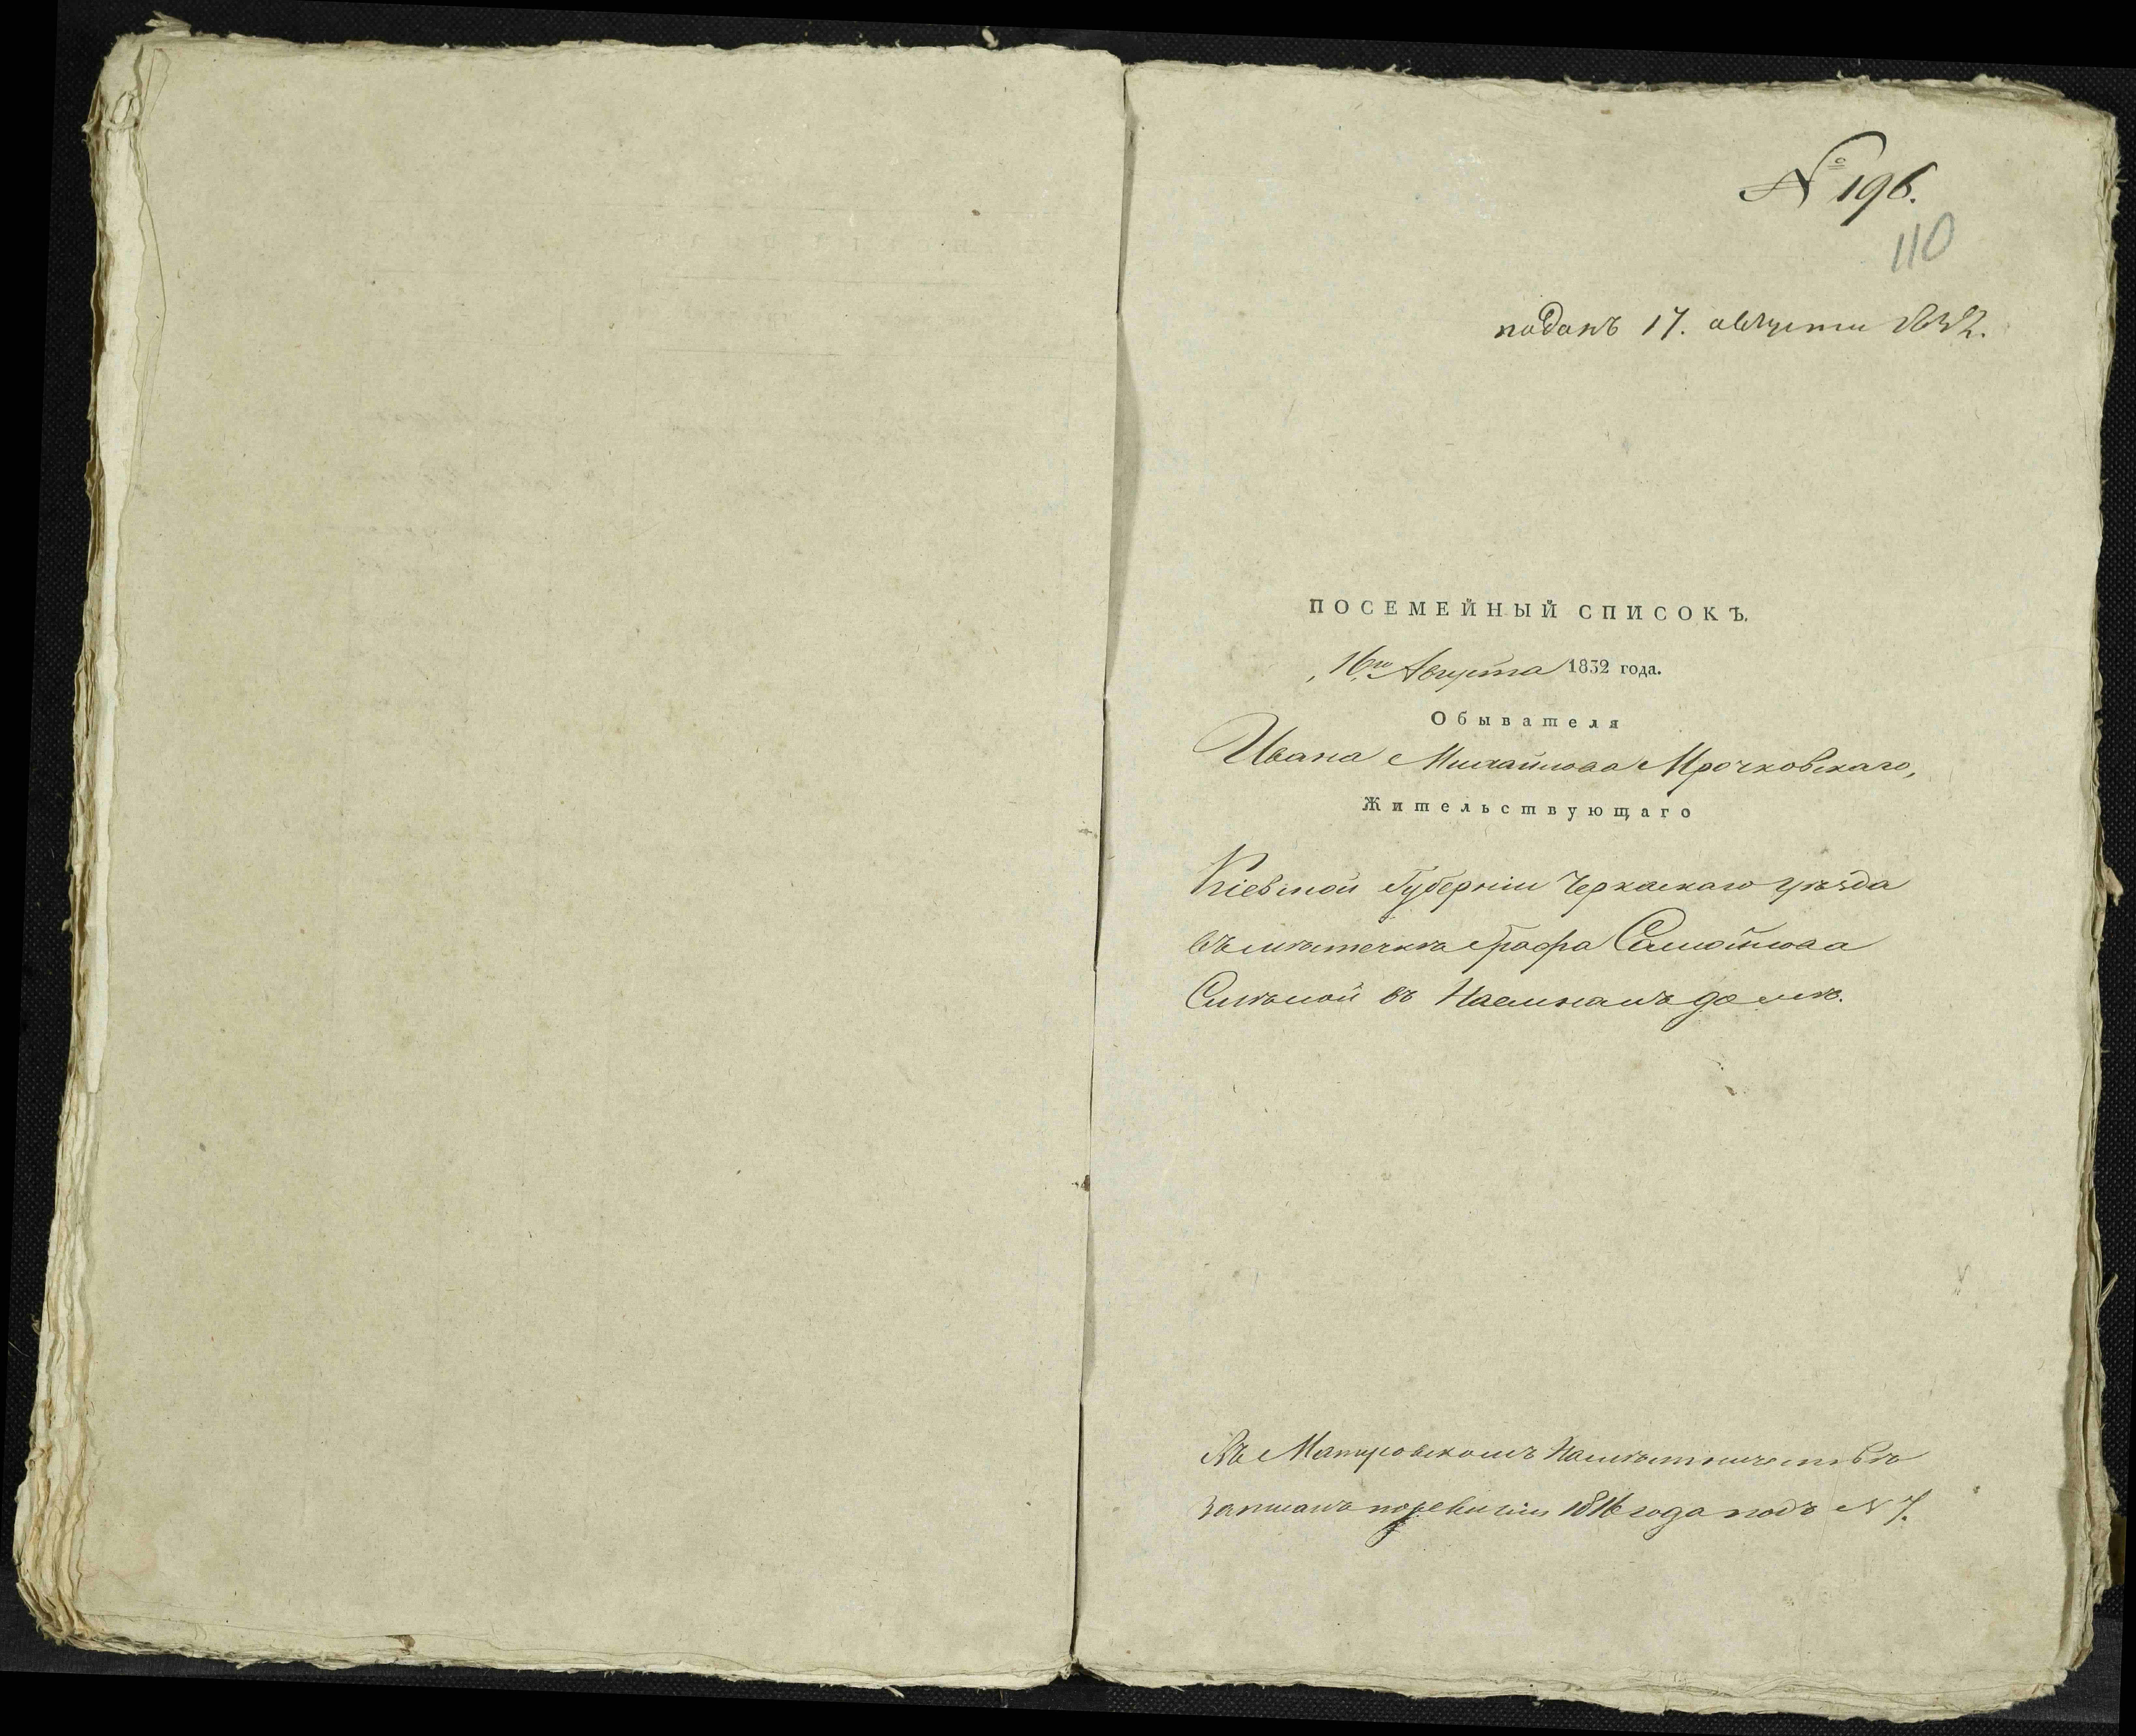 № 196.
110
поданъ 17. августа 1832.
ПОСЕМЕЙНЫЙ СПИСОКЪ.
16го Августа 1832 года.
Обывателя
Ивана Михайлова Мрочковскаго,
Жительствующаго
Кіевской Губерніи Черкаскаго уѣзда
въ мѣстечкѣ Графа Самойлова
Смѣлой въ Наемномъ домѣ.
Въ Матусовскомъ Намѣстничествѣ
записанъ поревизіи 1816 года подъ N 7.